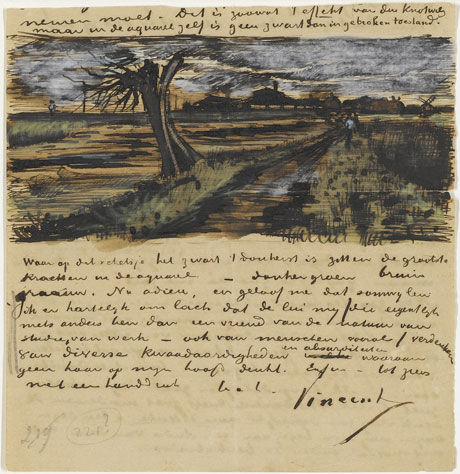 nemen moet. Dit is zoowat 't effekt van den knotwilg
maar in de aquarel zelf is geen zwart dan in gebroken toestand.
Waar op dit schetsje het zwart 't donkerst is zitten de grootste
krachten in de aquarel – donkergroen bruin
graauw. Nu adieu, en geloof me dat somwijlen
ik er hartelijk om lach dat de lui mij (die eigentlijk
niets anders ben dan een vriend van de natuur van
studie, van werk – ook van menschen vooral) verdenken
van diverse kwaadaardigheden en absurditeiten waaraan
geen haar op mijn hoofd denkt. Enfin – tot ziens
met een handdruk t. à t.
Vincent